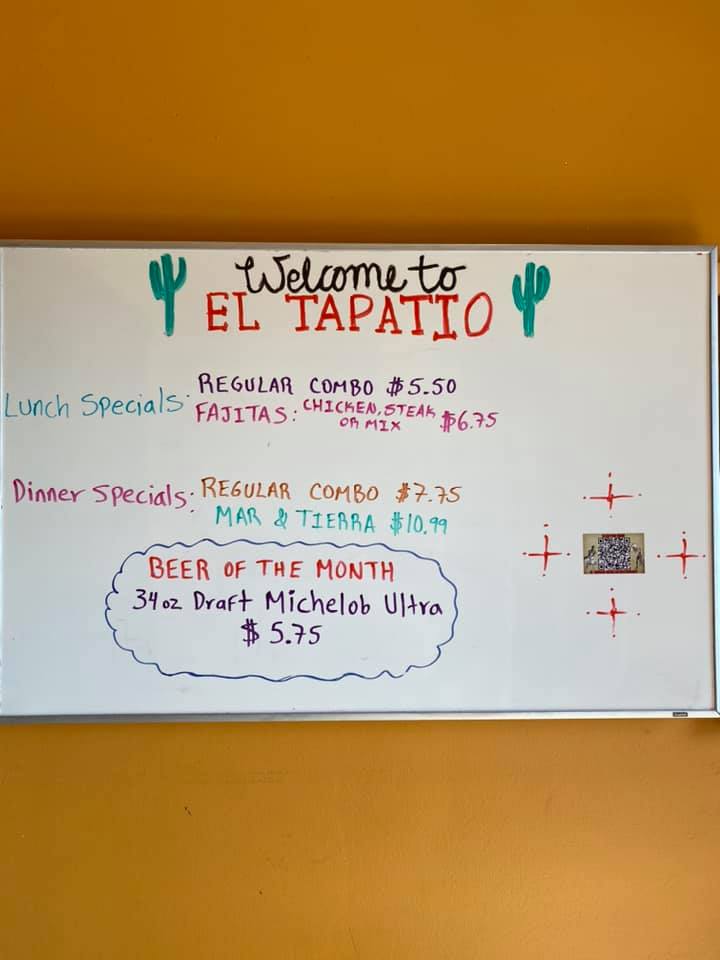 Welcome to
EL TAPATIO
Lunch Specials: REGULAR COMBO $5.50
FAJITAS: CHICKEN, STEAK OR MIX $6.75
Dinner Specials: REGULAR COMBO $7.75
MAR & TIERRA $10.99
BEER OF THE MONTH
34oz Draft Michelob Ultra
$5.75